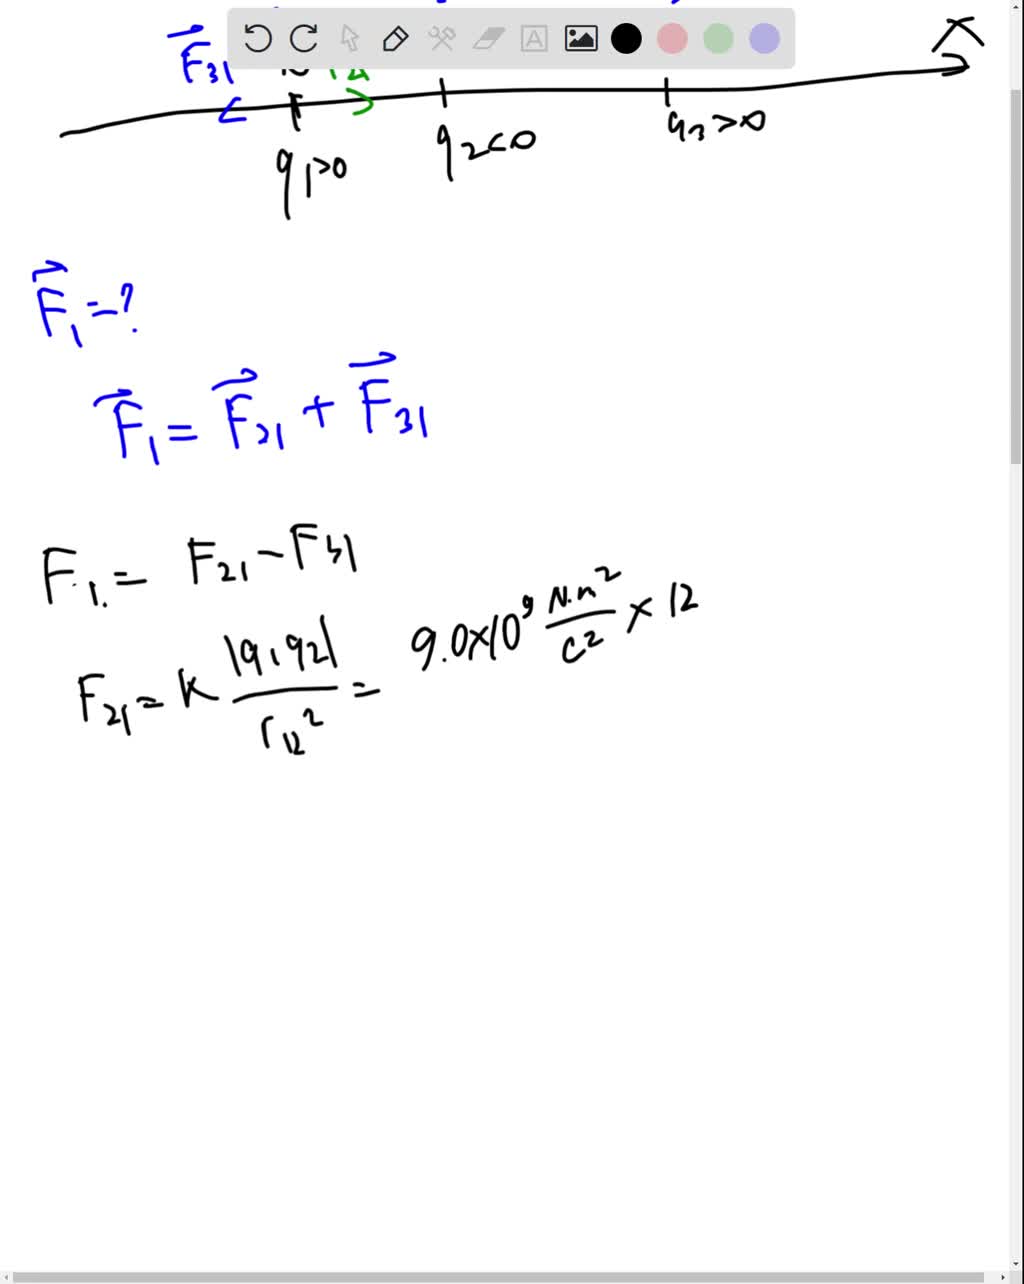 F⃗31
q1>0
q2<0
q3>0
X
F⃗1=?
F⃗1 = F⃗21 + F⃗31
F1. = F21 - F31
F21 = k |q1q2| / r12² = 9.0×10⁹ N·m²/C² × 12